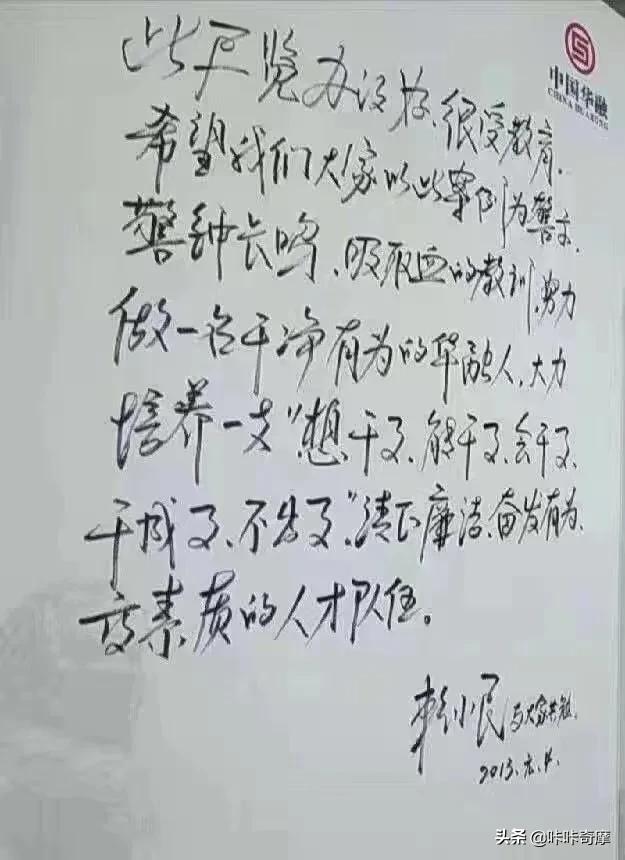 中国华融
CHINA HUARONG
此展览办没好、很受教育,
希望我们大家以此案例为警示,
警钟长鸣、吸取血的教训,努力
做一名干净有为的华融人,大力
培养一支"想干事、能干事、会干事、
干成事、不出事"清正廉洁、奋发有为、
高素质的人才队伍。
赖小民与大家共勉.
2013.
头条 @咔咔奇摩